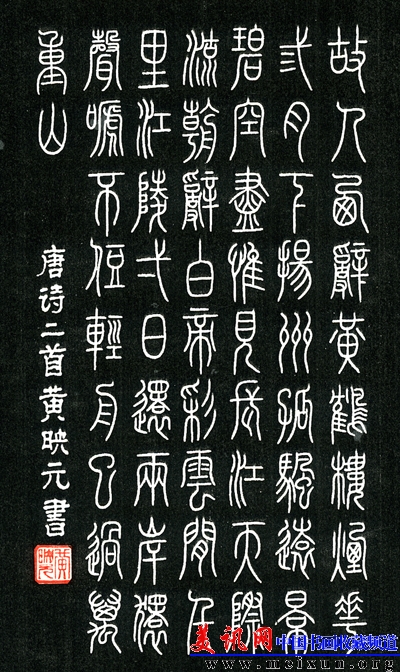 故人西辭黃鶴樓煙華
弎月下揚州孤颿遠景
碧空盡惟見長江天際
流朝辭白帝彩雲間千
里江陵弌日還兩岸猿
聲嗁不住輕舟已過萬
重山
唐诗二首黄映元書
美讯网 中国书画收藏频道
www.meixun.org